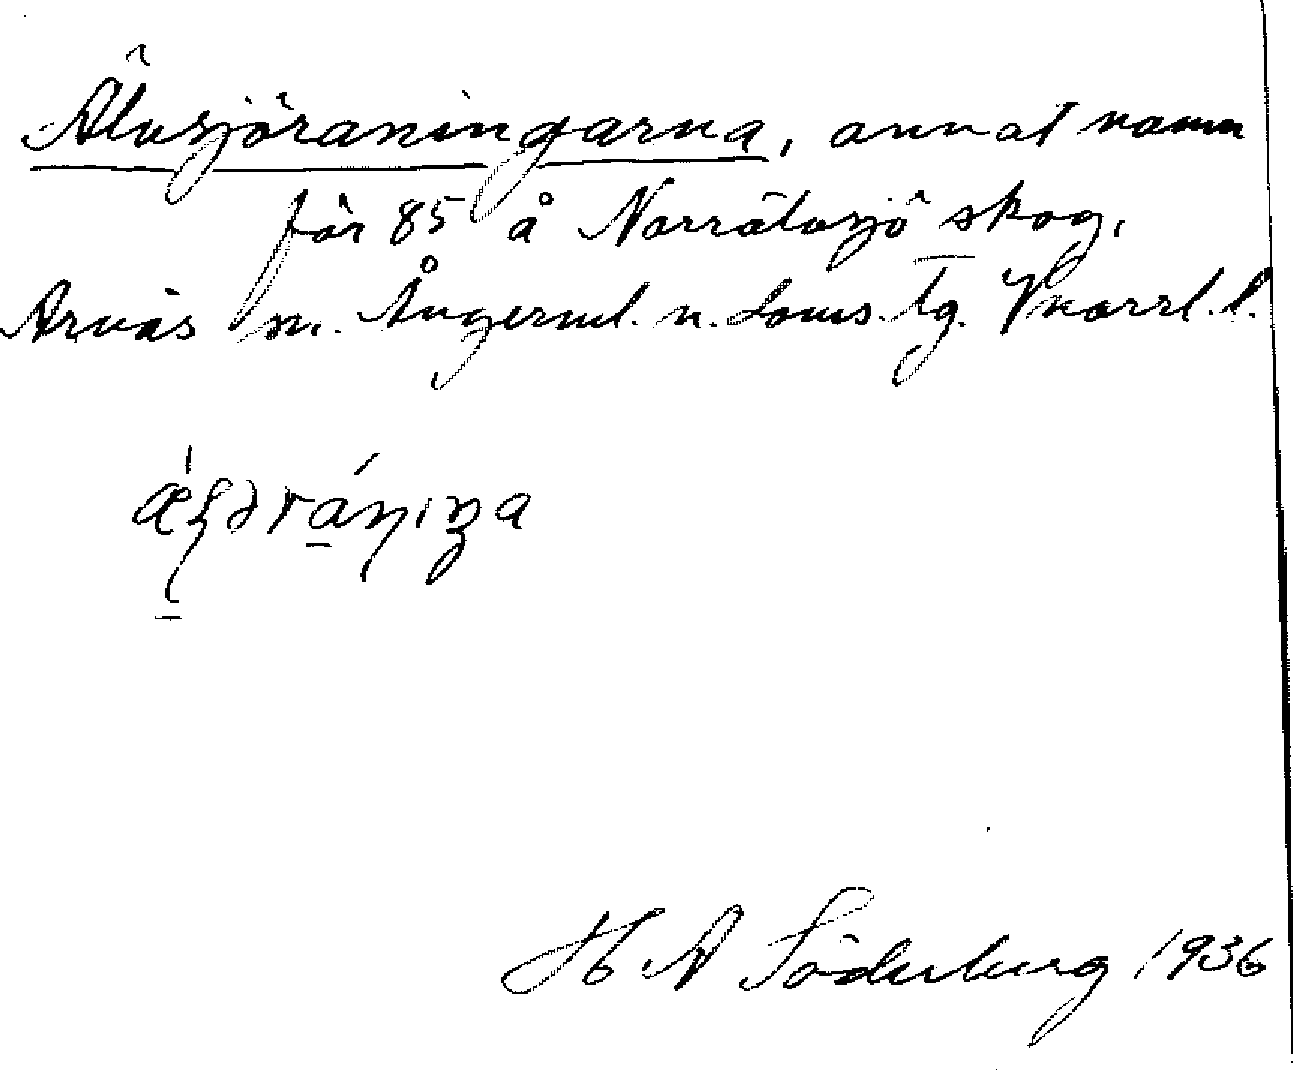 Älvsjöraningarna, annat namn
för 85 å Norrälvsjö skog,
Arnäs sn. Ångerml. n. doms. tg. Vnorrl. l.
H A Söderberg 1936